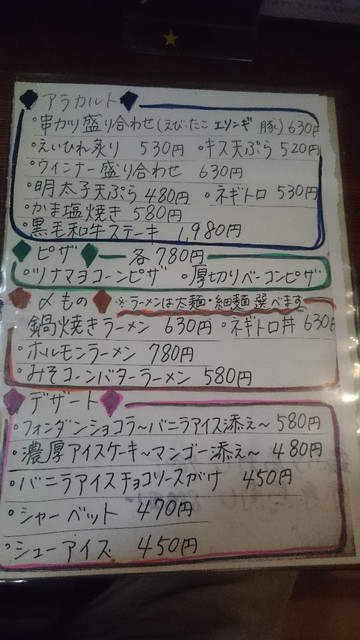 アラカルト
・串カツ盛り合わせ(えび・たこ エリンギ 豚) 630円
・えいひれ炙り 530円 ・キス天ぷら 520円
・ウィンナー盛り合わせ 630円
・明太子天ぷら 480円 ・ネギトロ 530円
・かま塩焼き 580円
・黒毛和牛ステーキ 1,980円
ピザ 各780円
・ツナマヨコーンピザ ・厚切りベーコンピザ
〆もの ※ラーメンは太麺・細麺選べます
鍋焼きラーメン 630円 ・ネギトロ丼 630円
・ホルモンラーメン 780円
・みそコーンバターラーメン 580円
デザート
・フォンダンショコラ~バニラアイス添え~ 580円
・濃厚アイスケーキ~マンゴー添え~ 480円
・バニラアイスチョコソースがけ 450円
・シャーベット 470円
・シューアイス 450円